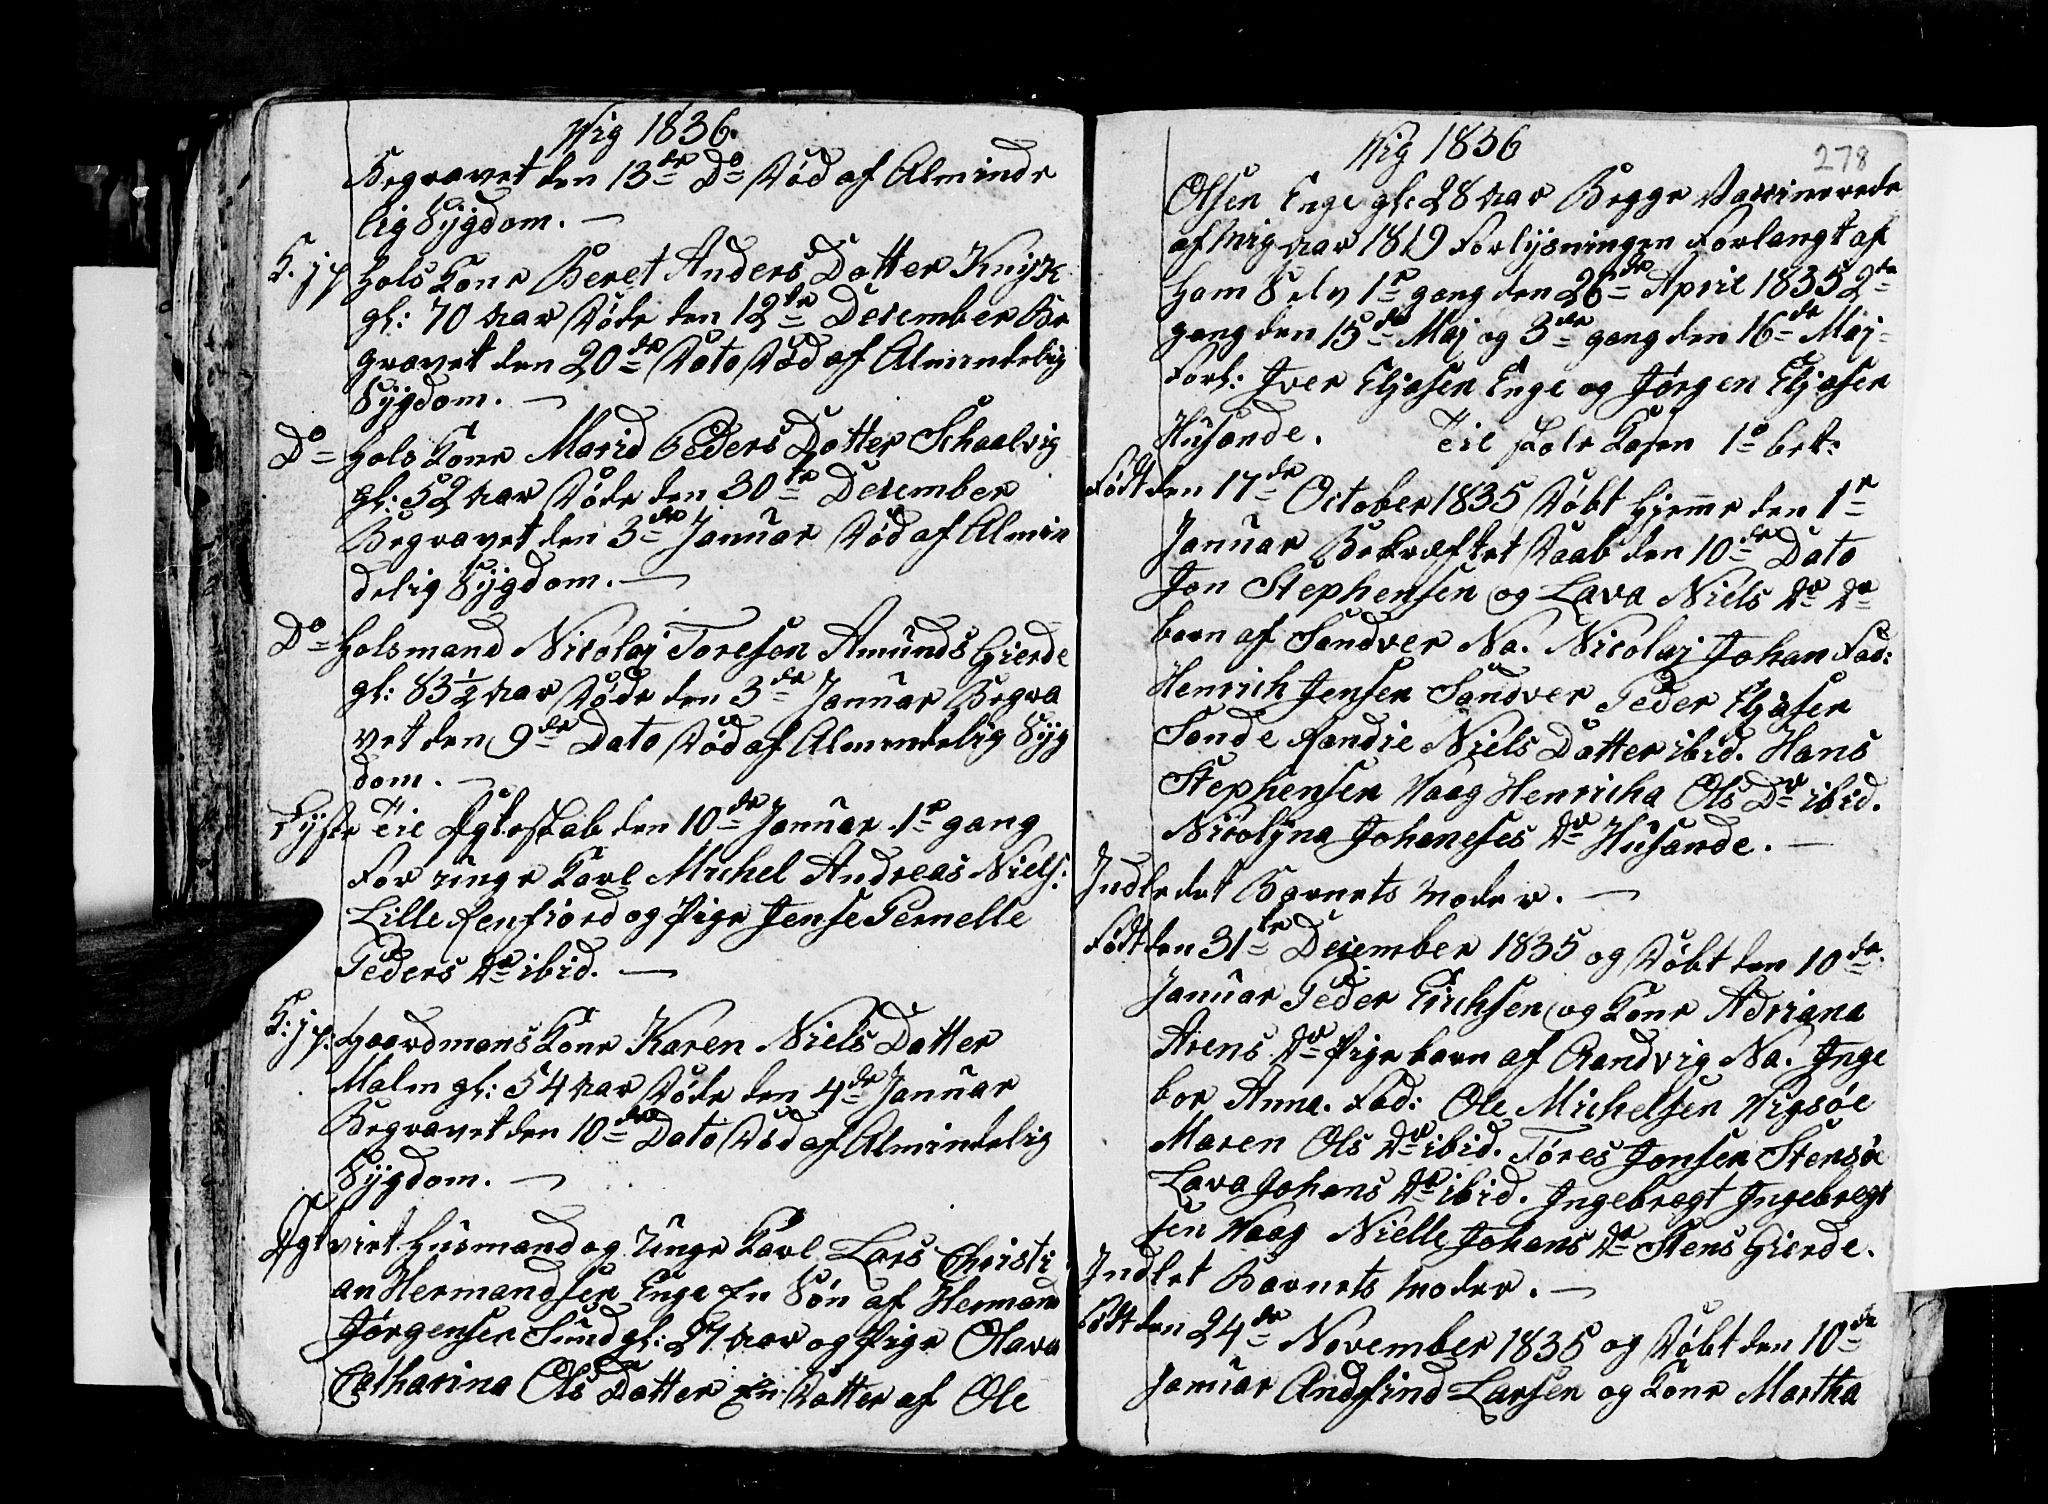 Wig 1836.
Begravet den 13de Do Död af Alminde
lig Sÿgdom. —
K: j p. Hols Kone Beret Anders Datter Knÿk
gl: 70 Aar Döde den 12te December Be
gravet den 20de Dato Död af Almindelig
Sÿgdom. —
Do Hols Kone Marid Peders Datter Schaalvig
gl: 52 Aar Döde den 30te December
Begravet den 3de Januar Död af Almin
delig Sÿgdom. —
Do Holsmand Nicolaj Toresen AmundsGierde
gl: 83½ Aar Döde den 3de Januar Begra
vet den 9de Dato Död af Almindelig Sÿg
dom. —
Lÿste Til Ægteskab den 10de Januar 1e gang
For unge Karl Michel Andreas Niels:
Lille Renfiord og Pige Jense Pernelle
Peders Dr ibid. —
K: j p: Gaardmans Kone Karen Niels Datter
Malm gl: 54 Aar Döde den 4de Januar
Begravet den 10de Dato Död af Almindelig
Sÿgdom. —
Ægtviet Husmand og unge Karl Lars Christi
an Hermandsen Enge En Sön af Hermand
Jørgensen Sund gl: 27 Aar og Pige Olava
Catharina Ols Datter En Datter af Ole
Wig 1836
278
Olsen Enge gl: 28 Aar Begge Vaccinerede
af Mig Aar 1819 Forlysningen Forlangt af
Ham Selv 1e gang den 26de April 1835 2de
gang den 15de Maj og 3de gang den 16de Maj
Forl: Iver Eljasen Enge og Jørgen Eljasen
Husande. Til Skole Kassen 1o bet:
Födt den 17de October 1835 Döbt Hjemme den 1e
Januar Bekræftet Daab den 10de Dato
Jon Stephensen og Lava Niels Dr Dr
barn af Sandver Na. Nicolaj Johan Fad:
Henrich Jensen Sandver Peder Eljasen
Sande Randie Niels Datter ibid. Hans
Stephensen Vaag Henricha Ols Dr ibid.
Nicolÿna Johaneses Dr Husande. —
Indledet Barnets Moder. —
Födt den 31te December 1835 og Döbt den 10de
Januar Peder Erichsen og Kone Adriana
Arens Dr Pige barn af Randvig Na. Inge
bor Anna. Fad: Ole Michelsen Vigsøe
Maren Ols Dr ibid. Føres Jonsen Stensöe
Lava Johans Dr ibid. Ingebregt Ingebregt
sen Vaag Nielle Johans Dr StensGierde.
Indlet Barnets Moder. —
Födt den 24de November 1835 og Döbt den 10de
Januar Andfind Larsen og Kone Martha